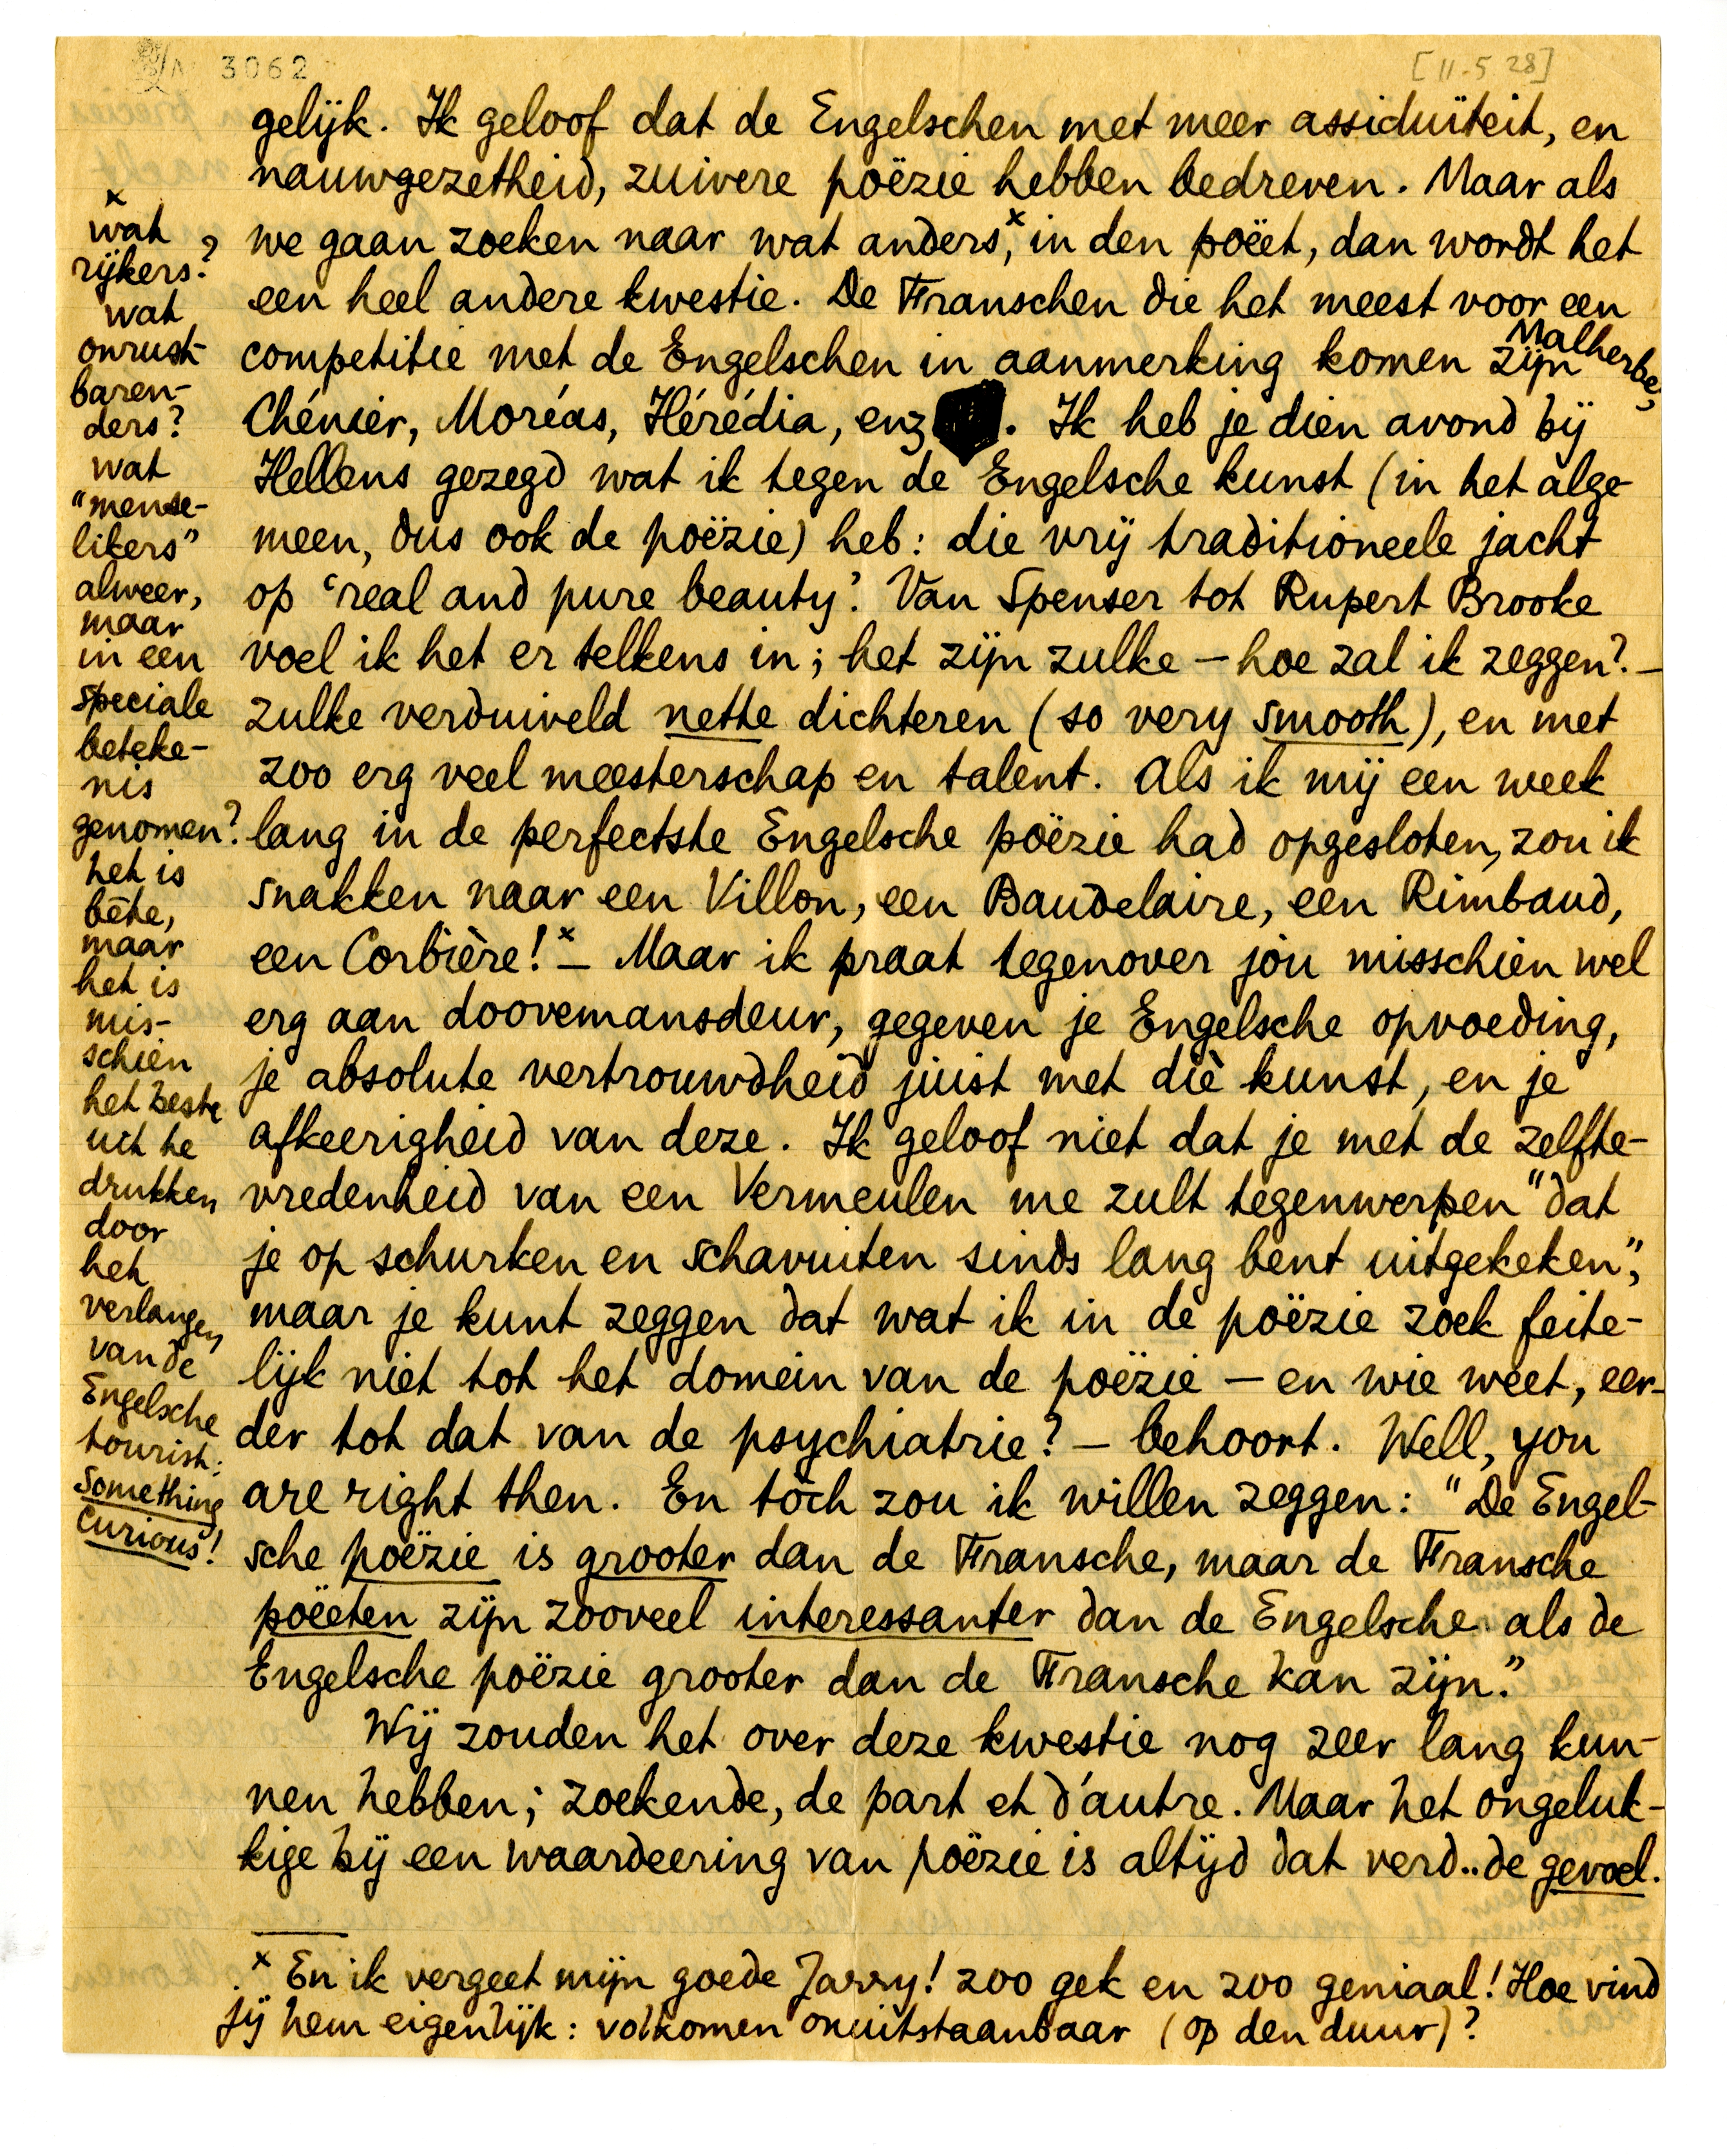 3062
[11-5 28]
gelijk. Ik geloof dat de Engelschen met meer assiduïteit, en
nauwgezetheid, zuivere poëzie hebben bedreven. Maar als
we gaan zoeken naar wat anders,x in den poëet, dan wordt het
een heel andere kwestie. De Franschen die het meest voor een
competitie met de Engelschen in aanmerking komen zijn Malherbe,
Chénier, Moréas, Hérédia, enz. Ik heb je dien avond bij
Hellens gezegd wat ik tegen de Engelsche kunst (in het alge-
meen, dus ook de poëzie) heb: die vrij traditioneele jacht
op ‘real and pure beauty’. Van Spenser tot Rupert Brooke
voel ik het er telkens in; het zijn zulke — hoe zal ik zeggen? —
zulke verduiveld nette dichteren (so very smooth), en met
zoo erg veel meesterschap en talent. Als ik mij een week
lang in de perfectste Engelsche poëzie had opgesloten, zou ik
snakken naar een Villon, een Baudelaire, een Rimbaud,
een Corbière!x — Maar ik praat tegenover jòu misschien wel
erg aan doovemansdeur, gegeven je Engelsche opvoeding,
je absolute vertrouwdheid juist met diè kunst, en je
afkeerigheid van deze. Ik geloof niet dat je met de zelfte-
vredenheid van een Vermeulen me zult tegenwerpen "dat
je op schurken en schavuiten sinds lang bent uitgekeken",
maar je kunt zeggen dat wat ik in de poëzie zoek feite-
lijk niet tot het domein van de poëzie — en wie weet, eer-
der tot dat van de psychiatrie? — behoort. Well, you
are right then. En tòch zou ik willen zeggen: "De Engel-
sche poëzie is grooter dan de Fransche, maar de Fransche
poëeten zijn zooveel interessanter dan de Engelsche als de
Engelsche poëzie grooter dan de Fransche kan zijn."
Wij zouden het over deze kwestie nog zeer lang kun-
nen hebben; zoekende, de part et d'autre. Maar het ongeluk-
kige bij een waardeering van poëzie is altijd dat verd..de gevoel.
x
wat
rijkers?
wat
onrust-
baren-
ders?
wat
"mense-
likers"
alweer,
maar
in een
speciale
beteke-
nis
genomen?
het is
bête,
maar
het is
mis-
schien
het beste
uit te
drukken
door
het
verlangen
van de
Engelsche
tourist:
something
curious!
x En ik vergeet mijn goede Jarry! zoo gek en zoo geniaal! Hoe vind
jij hem eigenlijk: volkomen onuitstaanbaar (op den duur)?